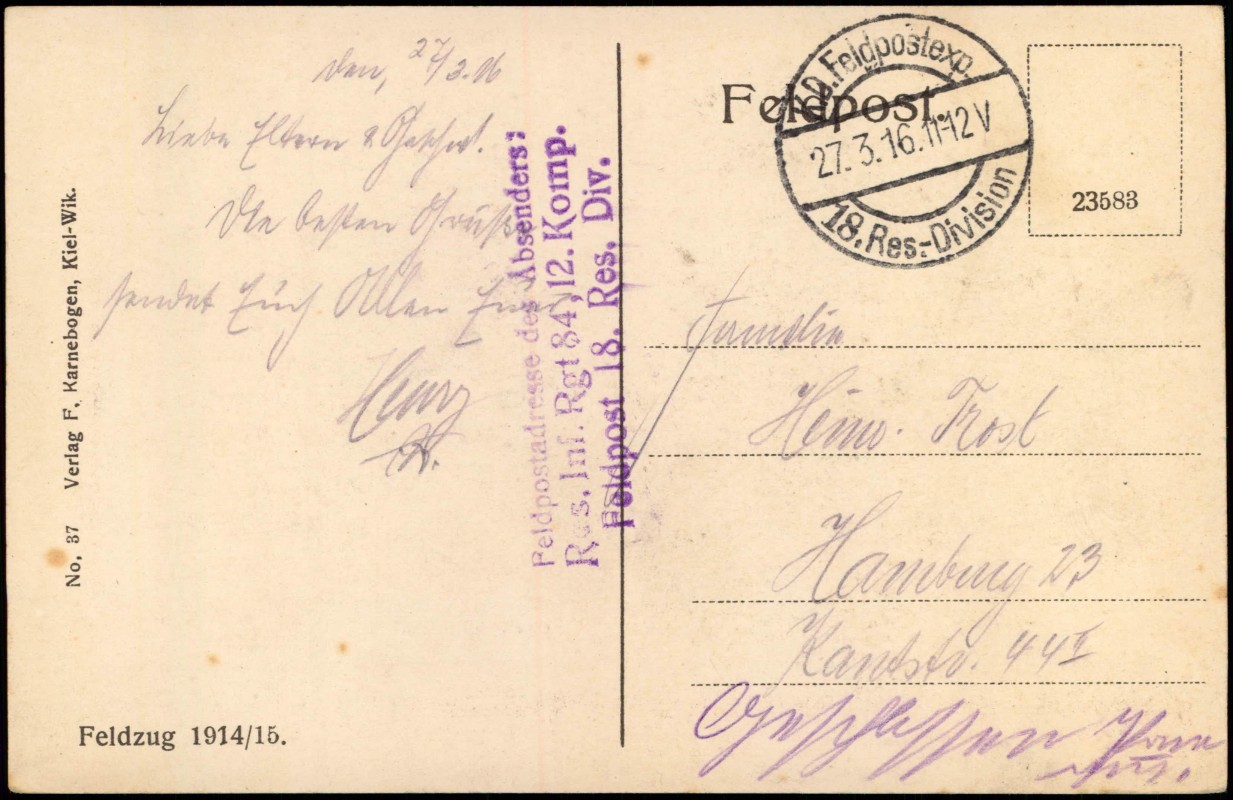 den, 27/3.16
Liebe Eltern & Geschw.
Die besten Grüße
sendet Euch Allen Euer
Henry
Feldpostadresse des Absenders:
Res. Inf. Rgt 84, 12. Komp.
Feldpost 18. Res. Div.
No. 37 Verlag F. Karnebogen, Kiel-Wik.
Feldzug 1914/15.
Feldpost.
K.D. Feldpostexp.
27.3.16.11-12V
18. Res.-Division
23583
Familie
Heinr. Trost
Hamburg 23
Kantstr. 44 II
Geschlossen